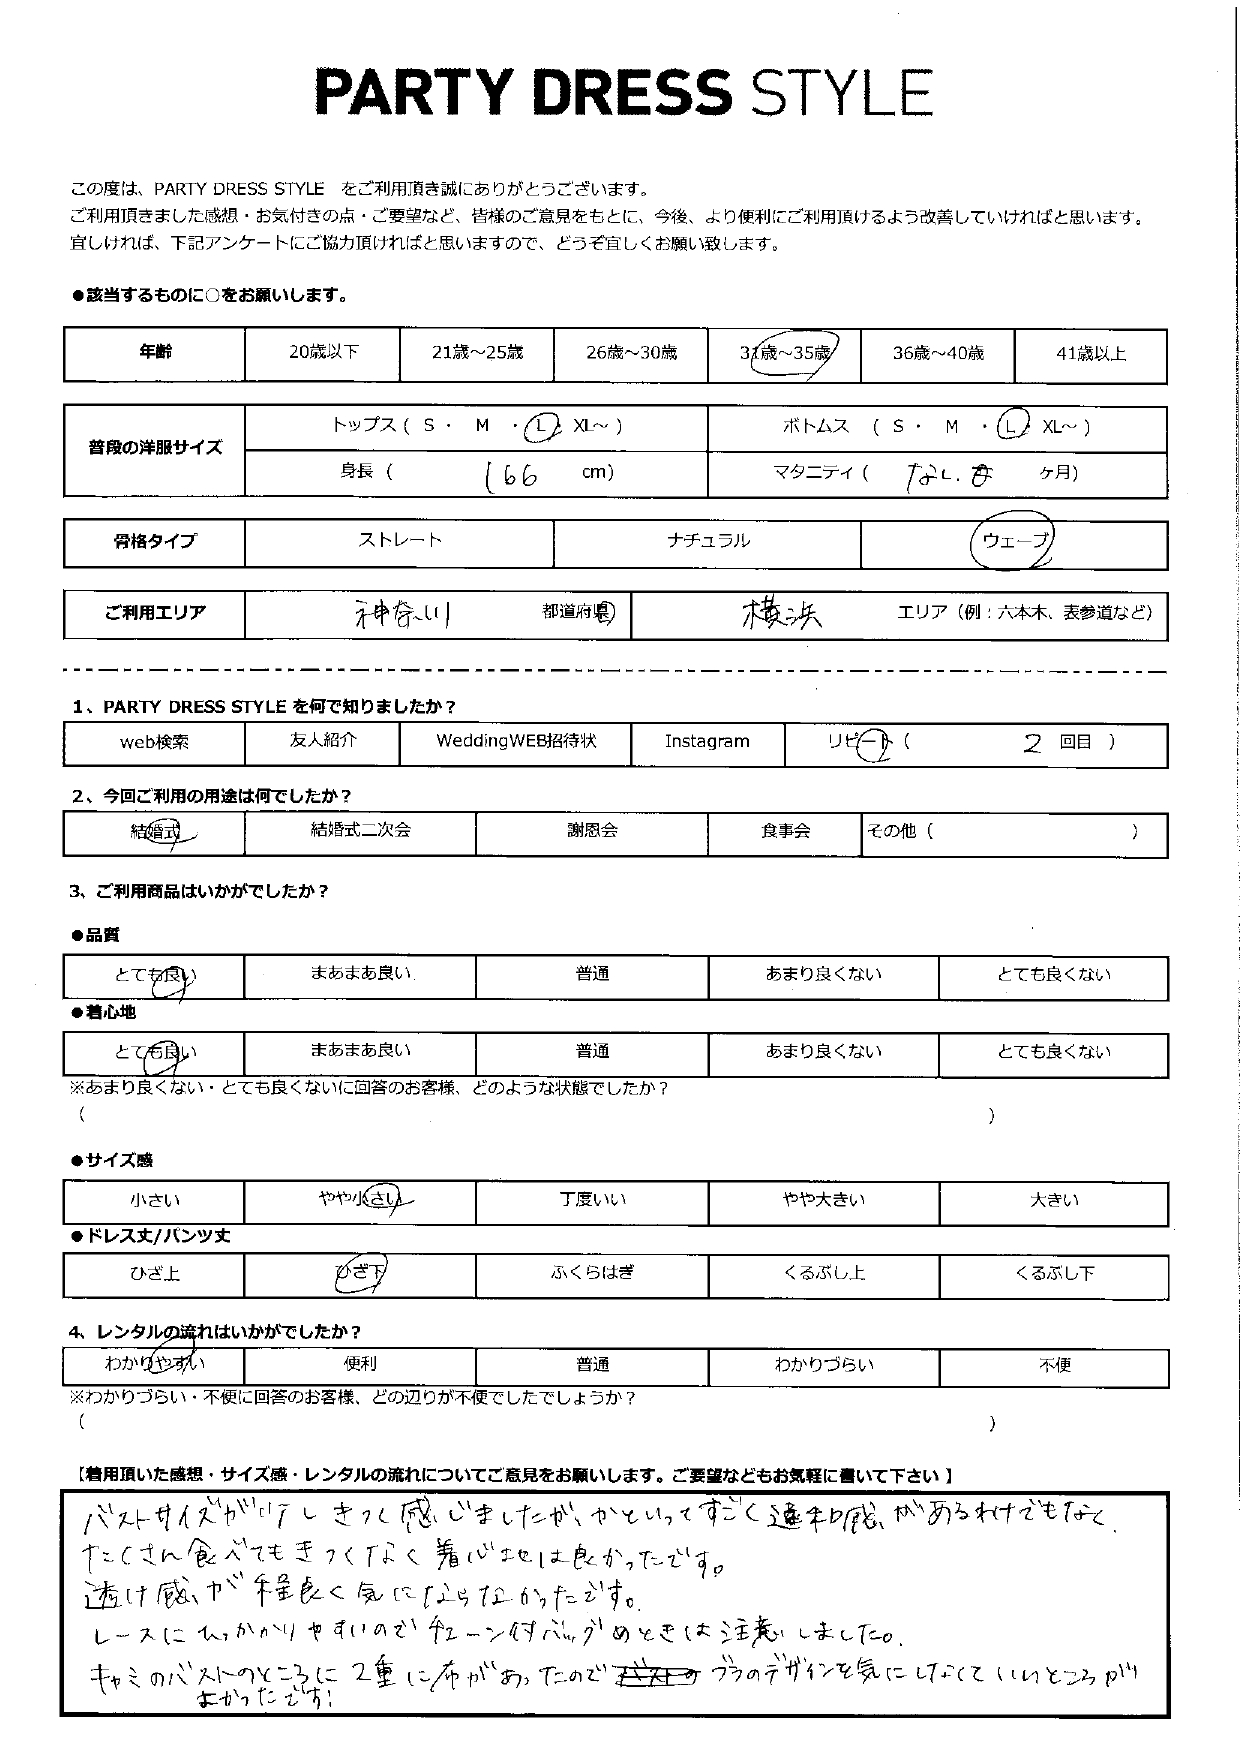 PARTY DRESS STYLE
この度は、PARTY DRESS STYLE をご利用頂き誠にありがとうございます。
ご利用頂きました感想・お気付きの点・ご要望など、皆様のご意見をもとに、今後、より便利にご利用頂けるよう改善していければと思います。
宜しければ、下記アンケートにご協力頂ければと思いますので、どうぞ宜しくお願い致します。
●該当するものに○をお願いします。
年齢 20歳以下 21歳～25歳 26歳～30歳 31歳～35歳 36歳～40歳 41歳以上
普段の洋服サイズ トップス ( S ・ M ・ L ・ XL～ ) ボトムス ( S ・ M ・ L ・ XL～ )
身長 ( 166 cm) マタニティ ( なし. ヶ月)
骨格タイプ ストレート ナチュラル ウェーブ
ご利用エリア 神奈川 都道府県 横浜 エリア（例：六本木、表参道など）
1、PARTY DRESS STYLE を何で知りましたか？
web検索 友人紹介 WeddingWEB招待状 Instagram リピート ( 2 回目 )
2、今回ご利用の用途は何でしたか？
結婚式 結婚式二次会 謝恩会 食事会 その他 ( )
3、ご利用商品はいかがでしたか？
●品質
とても良い まあまあ良い 普通 あまり良くない とても良くない
●着心地
とても良い まあまあ良い 普通 あまり良くない とても良くない
※あまり良くない・とても良くないに回答のお客様、どのような状態でしたか？
( )
●サイズ感
小さい やや小さい 丁度いい やや大きい 大きい
●ドレス丈/パンツ丈
ひざ上 ひざ下 ふくらはぎ くるぶし上 くるぶし下
4、レンタルの流れはいかがでしたか？
わかりやすい 便利 普通 わかりづらい 不便
※わかりづらい・不便に回答のお客様、どの辺りが不便でしたでしょうか？
( )
【着用頂いた感想・サイズ感・レンタルの流れについてご意見をお願いします。ご要望などもお気軽に書いて下さい 】
バストサイズが少しきつく感じましたが、かといってすごく違和感があるわけでもなく、
たくさん食べてもきつくなく着心地は良かったです。
透け感が程良く気にならなかったです。
レースにひっかかりやすいのでチェーン付バッグのときは注意しました。
キャミのバストのところに2重に布があったので ブラのデザインを気にしなくていいところが
よかったです!